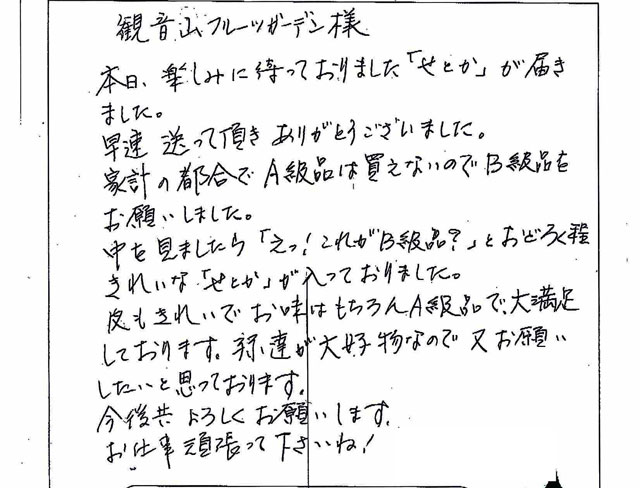 観音山フルーツガーデン様
本日、楽しみに待っておりました「せとか」が届き
ました。
早速 送って頂き ありがとうございました。
家計の都合で A級品は買えないので B級品を
お願いしました。
中を見ましたら「えっ!これがB級品?」とおどろく程
きれいな「せとか」が入っておりました。
皮もきれいで お味はもちろんA級品で、大満足
しております。孫達が大好物なので 又お願い
したいと思っております。
今後共 よろしくお願いします。
お仕事頑張って下さいね!